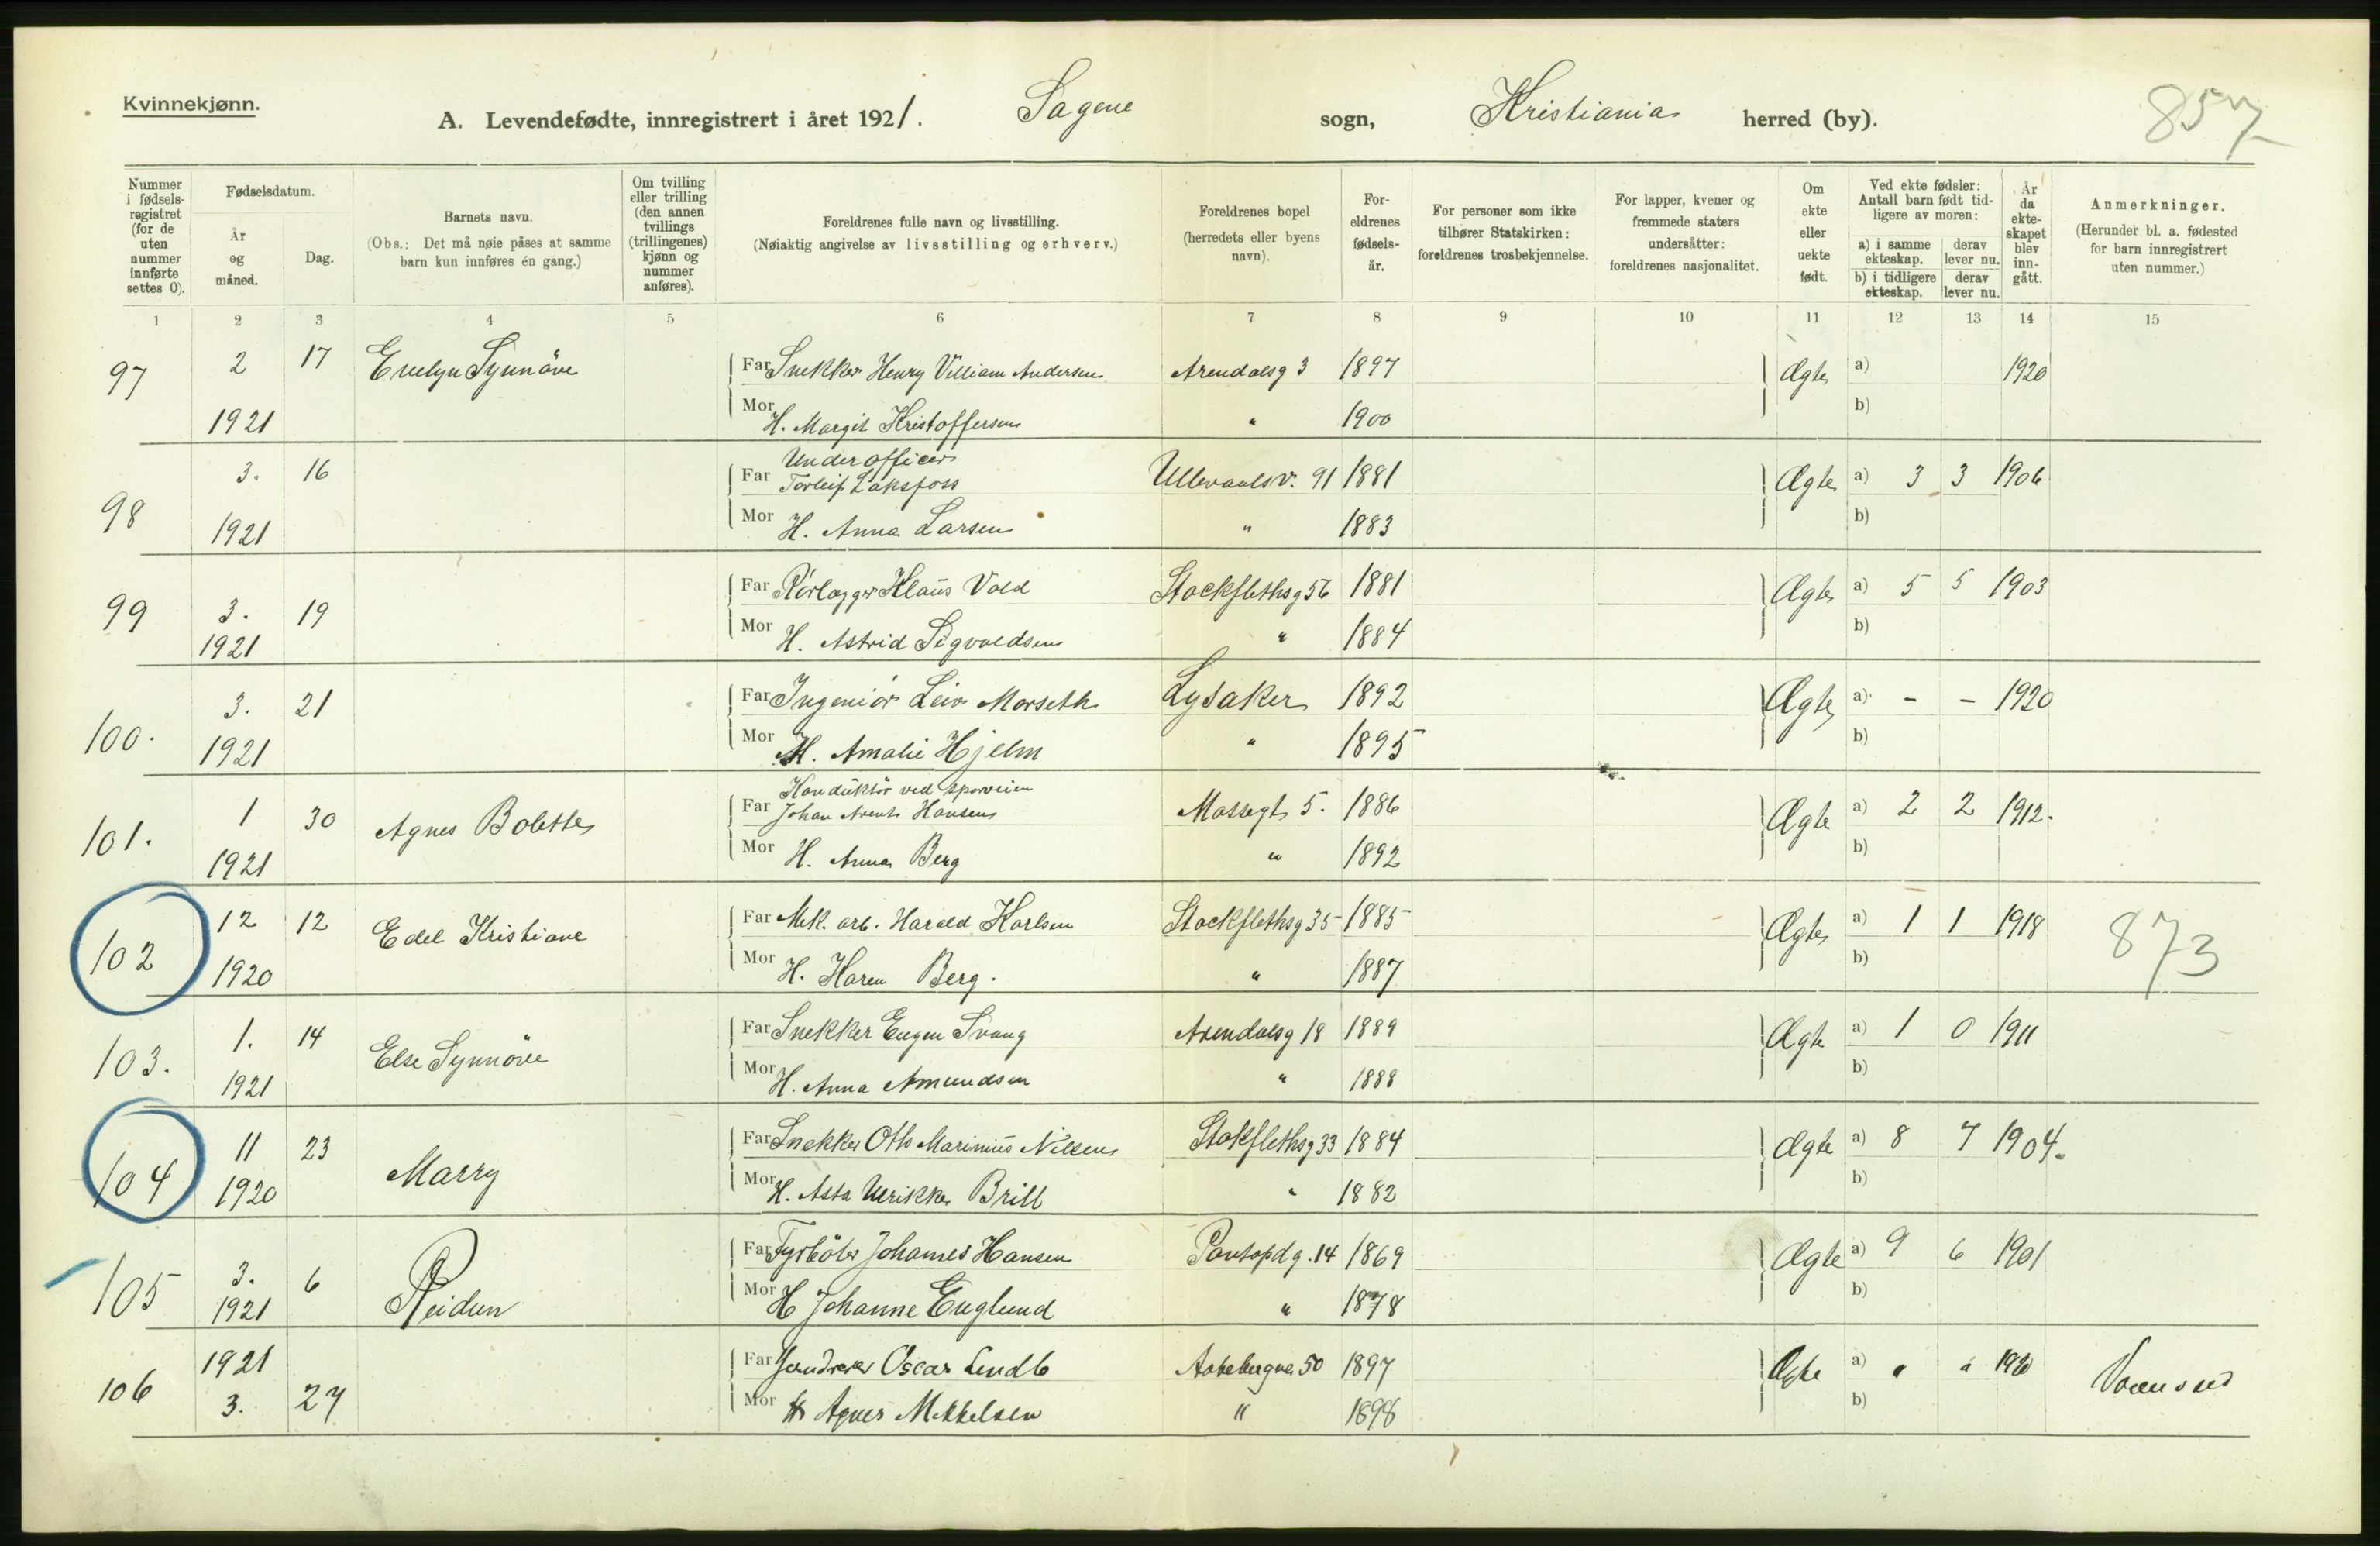 Kvinnekjønn.
A. Levendefødte, innregistrert i året 1921. Sagene sogn, Kristiania herred (by). 857
Nummer i fødsels-registret (for de uten nummer innførte settes 0).
Fødselsdatum.
År og måned.
Dag.
Barnets navn.
(Obs.: Det må nøie påses at samme barn kun innføres én gang.)
Om tvilling eller trilling (den annen tvillings (trillingenes) kjønn og nummer anføres).
Foreldrenes fulle navn og livsstilling.
(Nøiaktig angivelse av livsstilling og erhverv.)
Foreldrenes bopel (herredets eller byens navn).
For-eldrenes fødsels-år.
For personer som ikke tilhører Statskirken: foreldrenes trosbekjennelse.
For lapper, kvener og fremmede staters undersåtter: foreldrenes nasjonalitet.
Om ekte eller uekte født.
Ved ekte fødsler: Antall barn født tid-ligere av moren:
a) i samme ekteskap. derav lever nu.
b) i tidligere ekteskap. derav lever nu.
År da ekte-skapet blev inn-gått.
Anmerkninger.
(Herunder bl. a. fødested for barn innregistrert uten nummer.)
1 2 3 4 5 6 7 8 9 10 11 12 13 14 15
97 2 17 Evelyn Synnöve Far Snekker Henry Villiam Andersen Arendalsg 3 1897 Ægte a) 1920
1921 Mor H. Margit Kristoffersen " 1900 b)
Underofficer
98 3. 16 Far Torleif Laksfoss Ullevaalsv. 91 1881 Ægte a) 3 3 1906
1921 Mor H. Anna Larsen " 1883 b)
99 3. 19 Far Rörlægger Klaus Vold Stockflethsg 56 1881 Ægte a) 5 5 1903
1921 Mor H. Astrid Sigvaldsen " 1884 b)
100. 3. 21 Far Ingeniör Leiv Morseth Lysaker 1892 Ægte a) - - 1920
1921 Mor H. Amalie Hjelm " 1895 b)
Konduktör ved sporveien
101. 1 30 Agnes Bolette Far Johan Arent Hansen Mossegt 5. 1886 Ægte a) 2 2 1912.
1921 Mor H. Anna Berg " 1892 b)
102 12 12 Edel Kristiane Far Mek. arb. Harald Karlsen Stockflethsg 35 1885 Ægte a) 1 1 1918 873
1920 Mor H. Karen Berg. " 1887 b)
103. 1. 14 Else Synnöve Far Snekker Eugen Svang Arendalsg 18 1889 Ægte a) 1 0 1911
1921 Mor H. Anna Amundsen " 1888 b)
104 11 23 Marry Far Snekker Otto Marinius Nilsen Stokflethsg 33 1884 Ægte a) 8 7 1904.
1920 Mor H. Asta Ulrikke Brill " 1882 b)
105 3. 6 Reidun Far Fyrböter Johannes Hansen 14 1869 Ægte a) 9 6 1901
1921 Mor H Johanne Englund " 1878 b)
106 1921 Far Oscar 50 1897 Ægte a) " " 1920
3. 27 Mor H Agnes Mikkelsen " 1898 b)